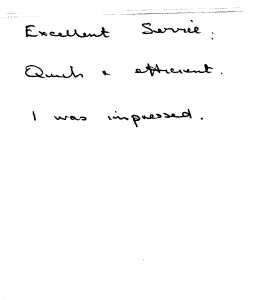 Excellent Service.
Quick & efficient.
I was impressed.